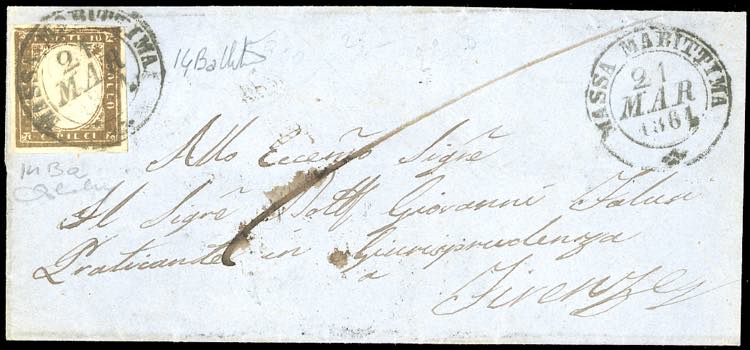 MASSA MARITTIMA
21
MAR
MASSA MARITTIMA
21
MAR
1861
14Ba
All' Eccemo Sigre
Il Sigre Dott Giovanni Falusi
Praticante in Giurisprudenza
a
Firenze